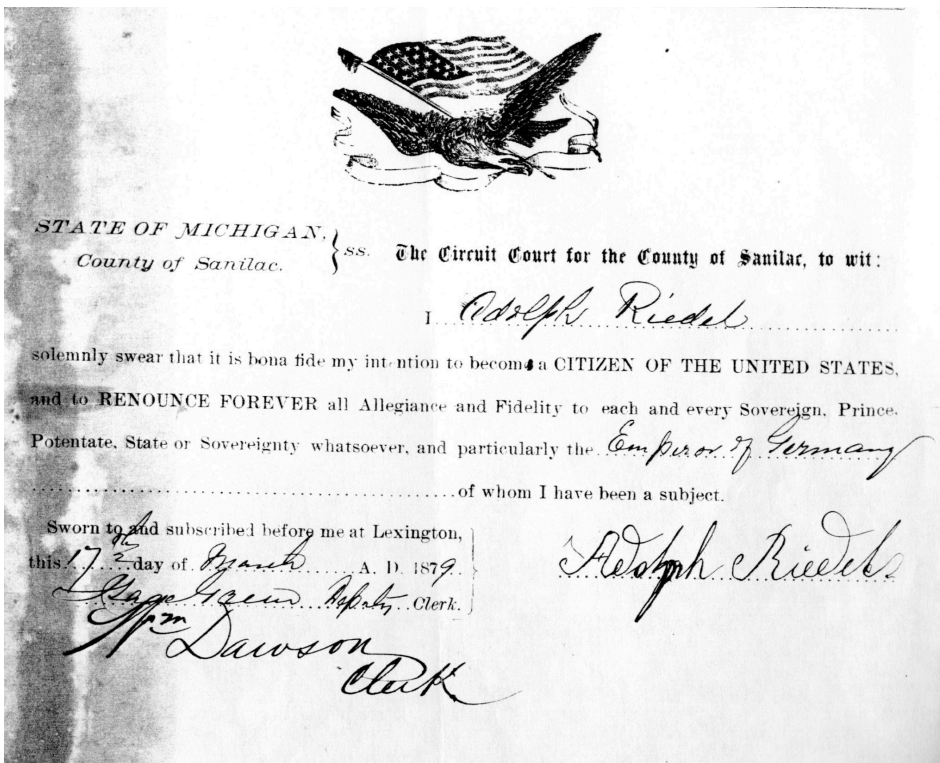 STATE OF MICHIGAN,
County of Sanilac.
ss. The Circuit Court for the County of Sanilac, to wit:
I Adolph Riedel
solemnly swear that it is bona fide my intention to become a CITIZEN OF THE UNITED STATES,
and to RENOUNCE FOREVER all Allegiance and Fidelity to each and every Sovereign, Prince,
Potentate, State or Sovereignty whatsoever, and particularly the Emperor of Germany
of whom I have been a subject.
Sworn to and subscribed before me at Lexington,
this 17th day of March A. D. 1879.
Deputy Clerk.
Wm Dawson
Clerk
Adolph Riedel